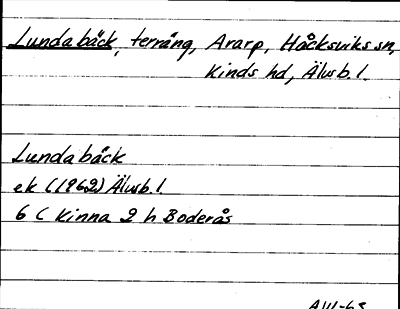 Lundabäck, terräng, Ararp, Håcksviks sn,
Kinds hd, Älvsb. l.
Lundabäck
ek (1962) Älvsb. l
6 C Kinna 2 h Boderås